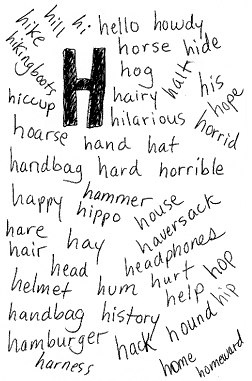 hike hill hi hello howdy
hikingboots H horse hide
hog halt his
hiccup hairy hope
hilarious horrid
hoarse hand hat
handbag hard horrible
happy hammer house
hippo haversack
hare hay headphones
hair head hurt hop
helmet hum help hip
handbag history hound
hamburger hack
harness home homeward